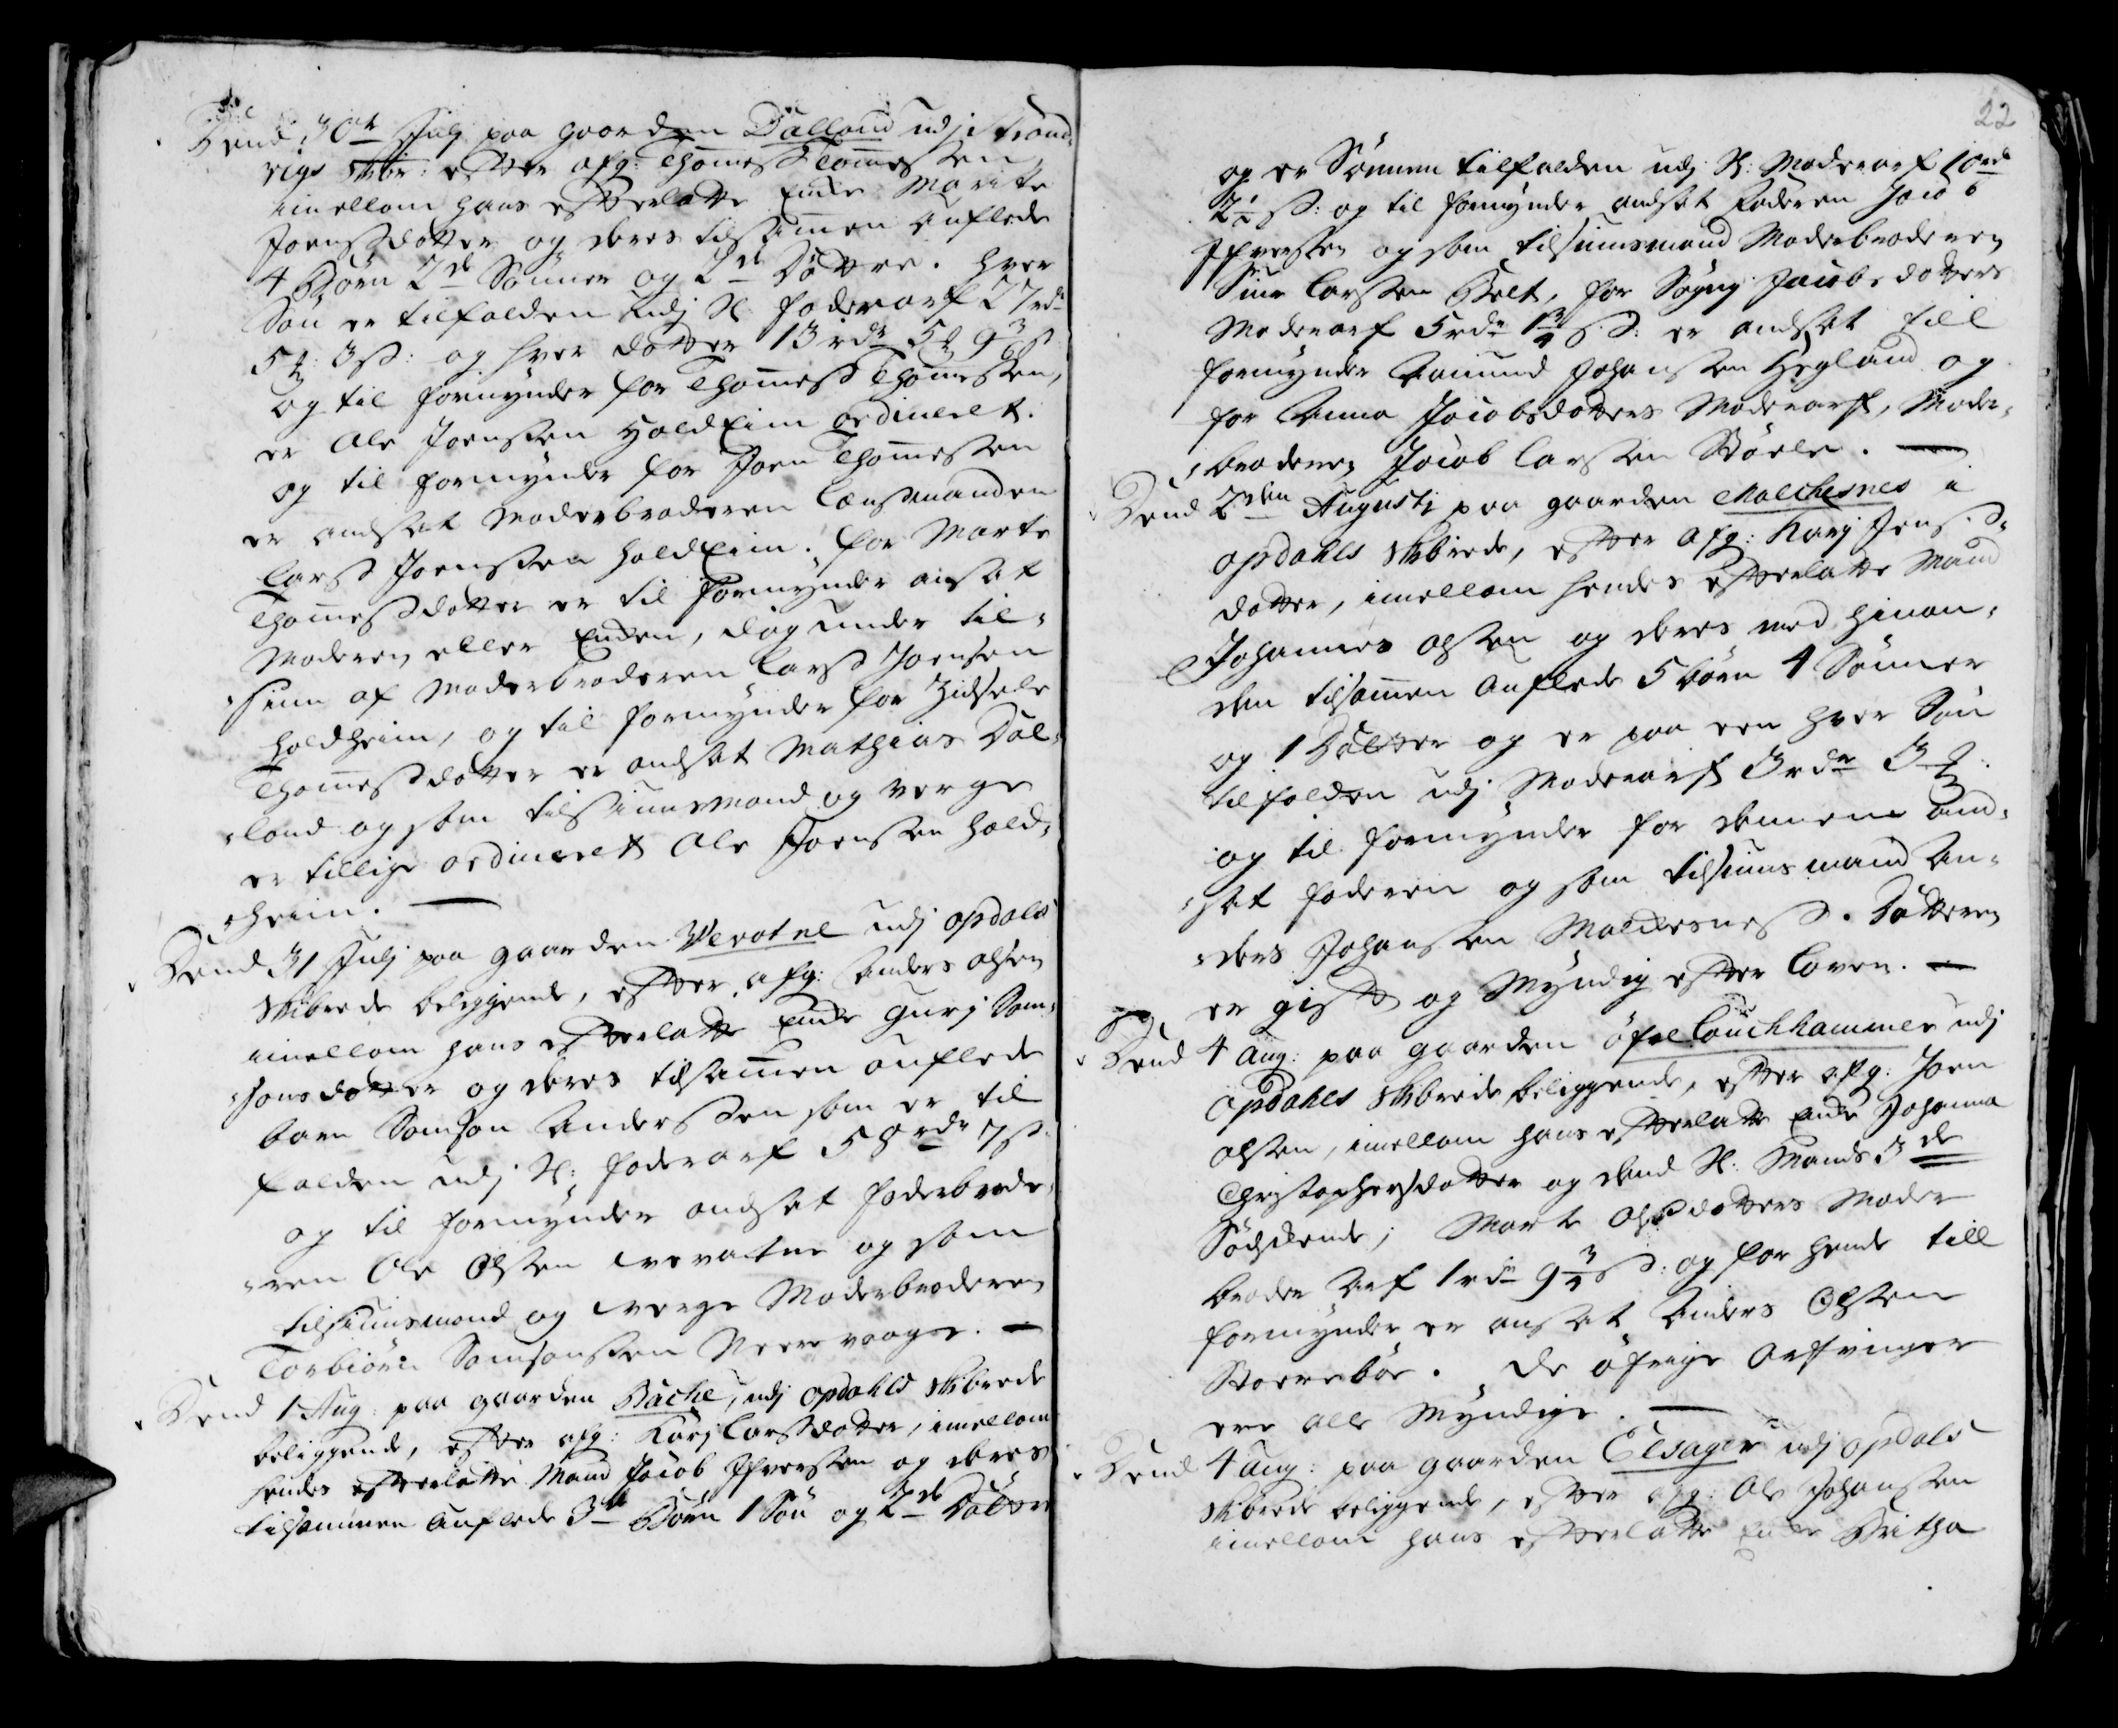 Dend 30te Julj paa gaarden Dalland udj Strand-
vigs Skibr: efter afg: Thomes Tomesen
imellom hans efterlatte Enke Marite
Joensdotter og deres tilsamen auflede
4 Børn 2de Sønner og 2de Døttre. hver
Søn er tilfalden udj Sl: faderarf 27 rdr
5 3 ß: og hver datter 13 rdr 5 9 3/8 ß
og til formynder for Thomes Thomesen,
er Ole Joensen Holdheim ordineret.
og til formynder for Joen Thomesen
er andsat Moderbroderen Lensmanden
Lars Joensen Holdheim. for Marte
Thomesdotter er til formynder ansat
Moderen eller Enken, dog under til-
siun af Moderbroderen Lars Joensen
holdheim, og til formynder for Zidsele
Thomesdotter er andsat Mathias Dal-
land og som tilsiunsmand og verge
er tillige ordineret Ole Joensen Hold-
heim.
Dend 31 Julj paa gaarden Wevatne udj opdals
Skibrede beliggende, efter afg: Anders olsen
imellom hans efterlatte Enke Gurj Sam-
sonsdotter og deres tilsamen auflede
barn Samson Andersen som er til
falden udj Sl: faderarf 58 rdr 7 ß
og til formynder andsat faderbrode-
ren Ole Olsen Wevatne og som
tilsiunsmand og verge Moderbroderen
Torbiørn Samsonsen Neerevaage.
Dend 1 Aug: paa gaarden Bache, udj opdahls Skibrede
beliggende, efter afg: Karj Larsdotter, imellom
hendes efterlatte Mand Jacob Iffversen og deres
tilsammen auflede 3de Børn 1 Søn og 2de Døttre
22
og er Sønnen tilfalden udj Sl: Moderarf 10 rdr
2 ß: og til formynder andsat Faderen Jacob
Iffversen og som tilsiunsmand Moderbroderen
Siur Larsen Bolt, for Sögny Jacobsdotters
Moderarf 5 rdr 1 3/4 ß: er andsat till
formynder Amund Johansen Hegland og
for Anna Jacobsdotters Moderarf, Moder-
broderen Jacob Larsen Støele.
Dend 2den Augustj paa gaarden Malchesnes i
opdahls Skibrede, efter afg: Karj Jens-
dotter, imellom hendes efterlatte Mand
Johannes olsen og deres med hinan-
den tilsamen auflede 5 börn 4 Sønner
og 1 Dotter og er paa een hver Søn
tilfalden udj Moderarf 3 rdr 3
og til formynder for dennem and-
sat faderen og som tilsiunsmand An-
ders Johansen Malchesnes. Dotteren
er gift og Myndig efter Loven.
Dend 4 Aug: paa gaarden öfre Louchhammer udj
Opdahls Skibrede beliggende, efter afg: Joen
olsen, imellom hans efterlatte Enke Johanna
Christophersdotter og dend Sl: Mands 3de
Sødskende, Marte Olsdotters Moder
broder Arf 1 rdr 9 3/4 ß: og for hende till
formynder er ansat Anders Olsen
Storebøe. De øfrige Arfvinger
ere alle Myndige.
Dend 4 Aug: paa gaarden Elsager udj opdals
Skibrede beliggende, efter afg: Ole Johansen
imellom hans efterlatte Enke Britha